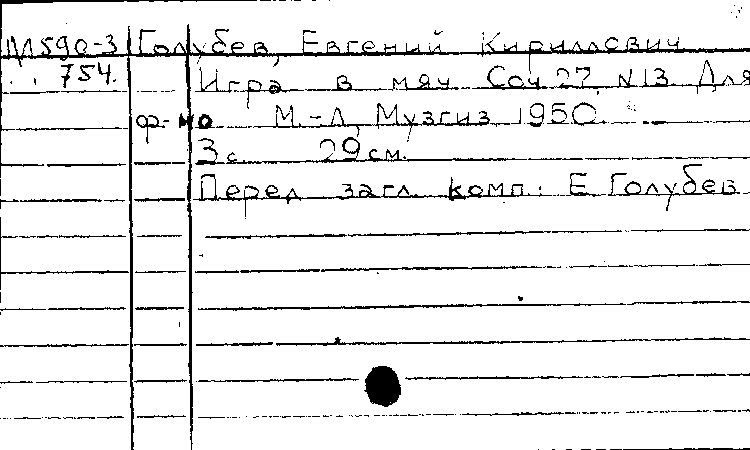 М590-3 Голубев, Евгений Кириллович
754. Игра в мяч. Соч. 27, N13. Для
ф-но М.-Л., Музгиз 1950.
3 с. 29 см.
Перед загл. комп.: Е. Голубев